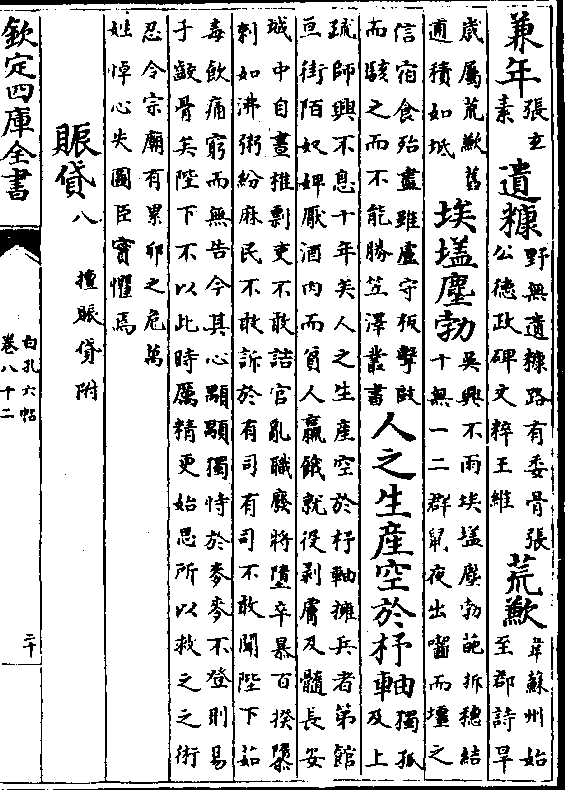 兼年張玄素遺糠野無遺糠路有委骨張公德政碑文粹王維荒歉韋蘇州始至郡詩旱
歲屬荒歉舊逋積如坻埃壒塵勃吳興不雨埃壒塵勃葩拆穗結十無一二群鼠夜出嚙而㙻之
信宿食殆盡雖廬守版擊敺而駭之而不能勝笠澤叢書人之生產空於杼軸獨孤及上
疏師興不息十年矣人之生產空於杼軸擁兵者第館亘街陌奴婢厭酒肉而貧人羸餓就役剥膚及髓長安
城中白晝椎剽吏不敢詰官亂職廢將墮卒暴百揆隳剌如沸粥紛麻民不敢訴於有司有司不敢聞陛下茹
毒飲痛窮而無告今其心顒顒獨恃於麥麥不登則易子齩骨矣陛下不以此時厲精更始思所以救之之術
忍令宗廟有累卵之危萬姓悼心失圖臣實懼焉
賑貸八 擅賑貸附
欽定四庫全書
白孔六帖
卷八十二
二十